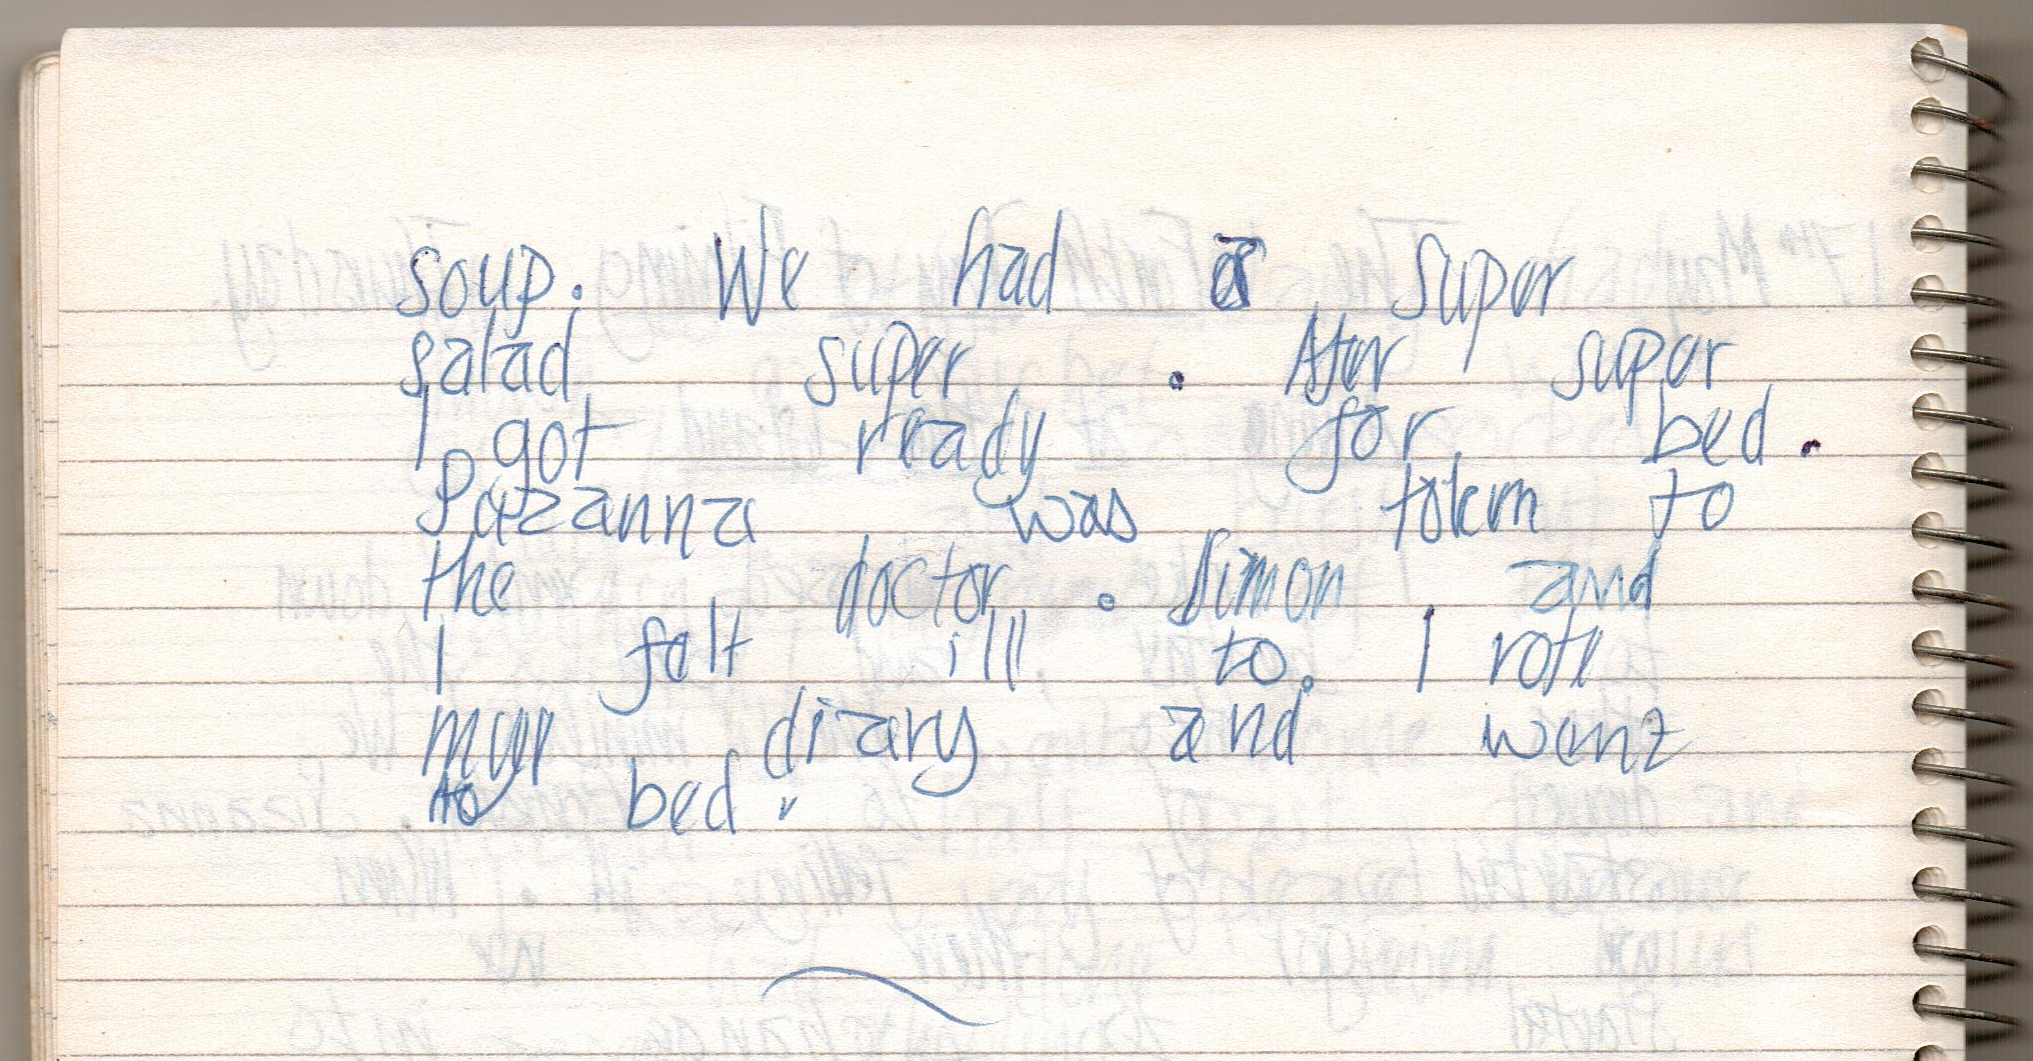 soup. We had a super
salad super. After super
I got ready for bed.
Suzanna was taken to
the doctor. Simon and
I felt ill to. I rote
myy diary and went
to bed.